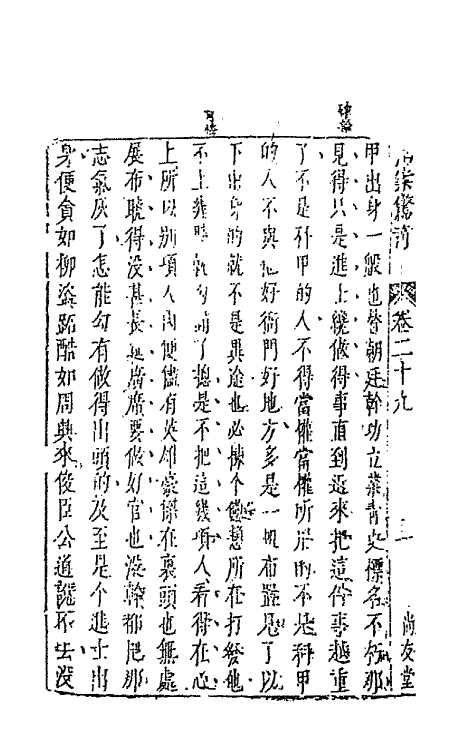 拍案驚奇 卷二十九 二 尚友堂
確論
甲出身一般也替朝廷幹功立業青史標名不朽那
見得只是進士纔做得事直到近來把這件事越重
了不是科甲的人不得當權當權所用的不是科甲
的人不與他好衙門好地方多是一帆布置見了以
下出身的就不是異途也必揀個憊懶所在打發他
不上幾時就勾銷了總是不把這幾項人看得在心
上所以別項人內便儘有英雄豪傑在裏頭也無處
展布曉得沒甚長筵廣席要做好官也沒幹都把那
志氣灰了怎能勾有做得出頭的及至是個進士出
身便貪如柳盜跖酷如周興來俊臣公道說不去沒